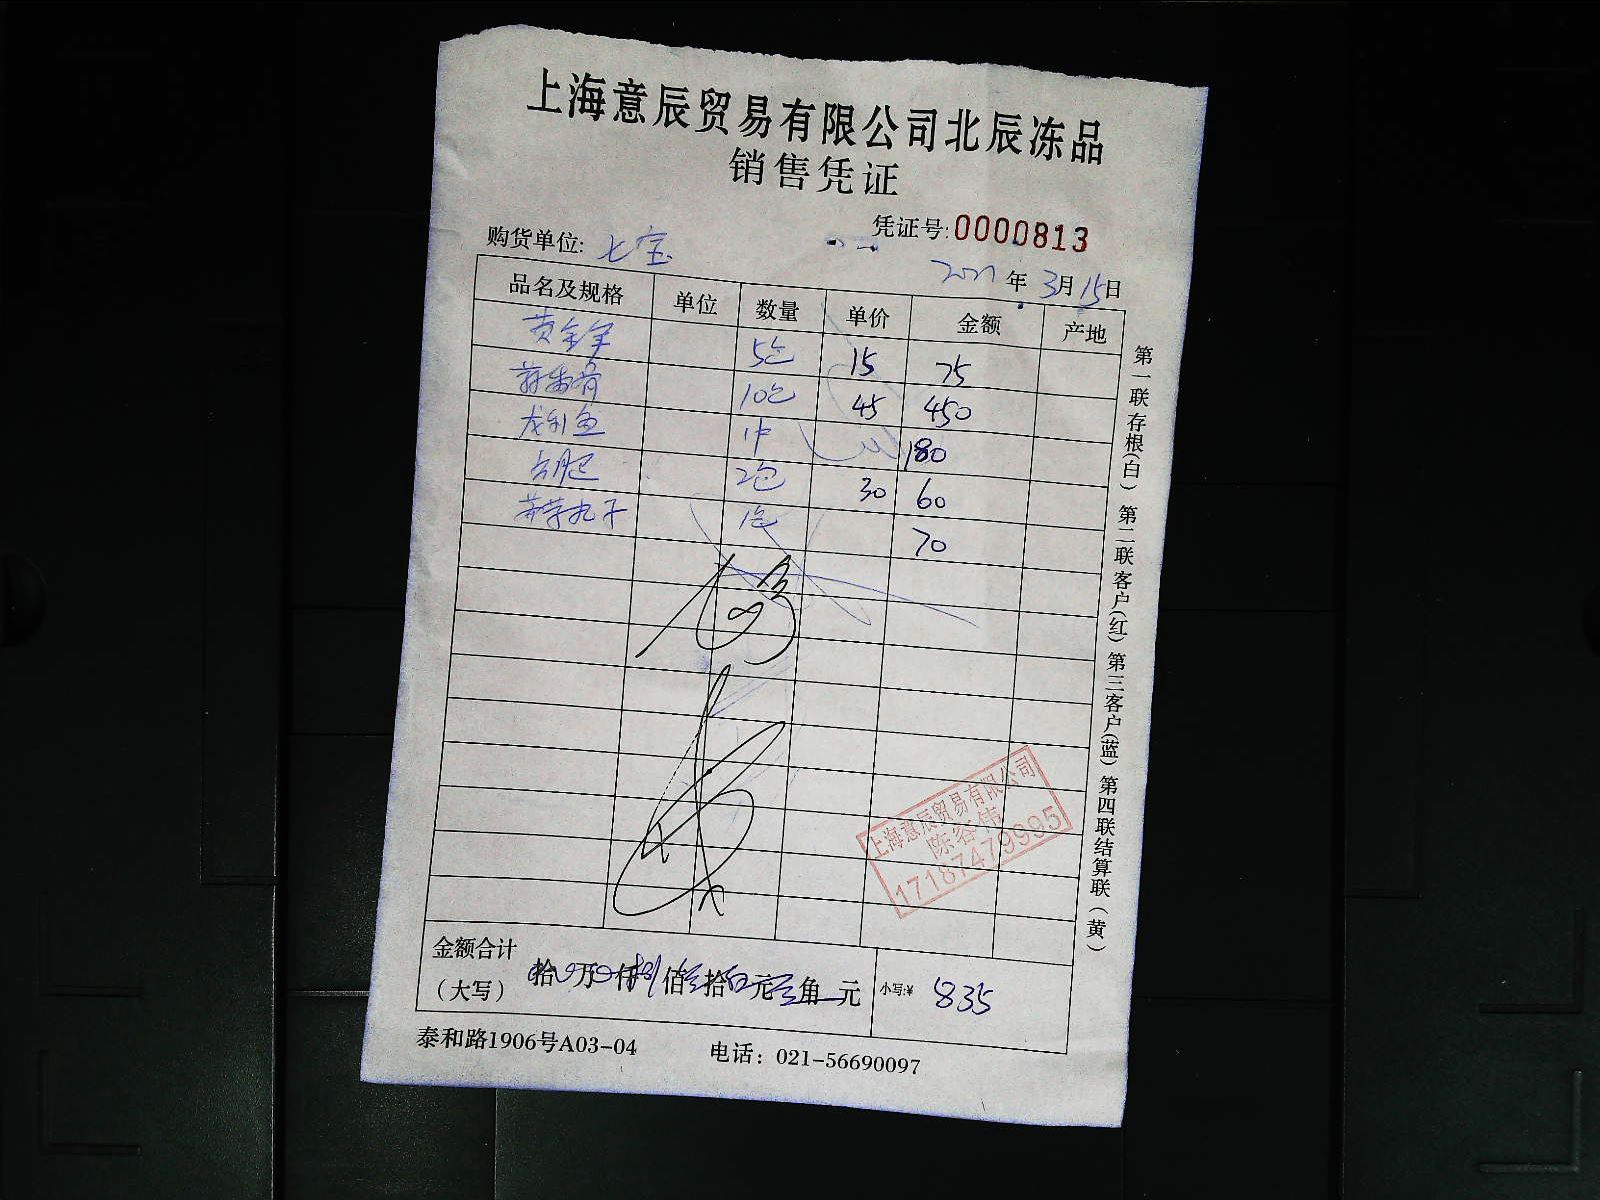 上海意辰贸易有限公司北辰冻品
销售凭证
凭证号:0000813
购货单位: 七宝
2021年3月15日
品名及规格 单位 数量 单价 金额 产地
黄金 5包 15 75
10包 45 450
龙利鱼 1件 180
2包 30 60
荸荠丸子 1包 70
上海意辰贸易有限公司
陈容伟
17187479995
金额合计
(大写) 拾 万 仟捌佰叁拾伍元 角 元 小写:¥ 835
泰和路1906号A03-04 电话: 021-56690097
第一联存根(白) 第二联客户(红) 第三客户(蓝) 第四联结算联(黄)